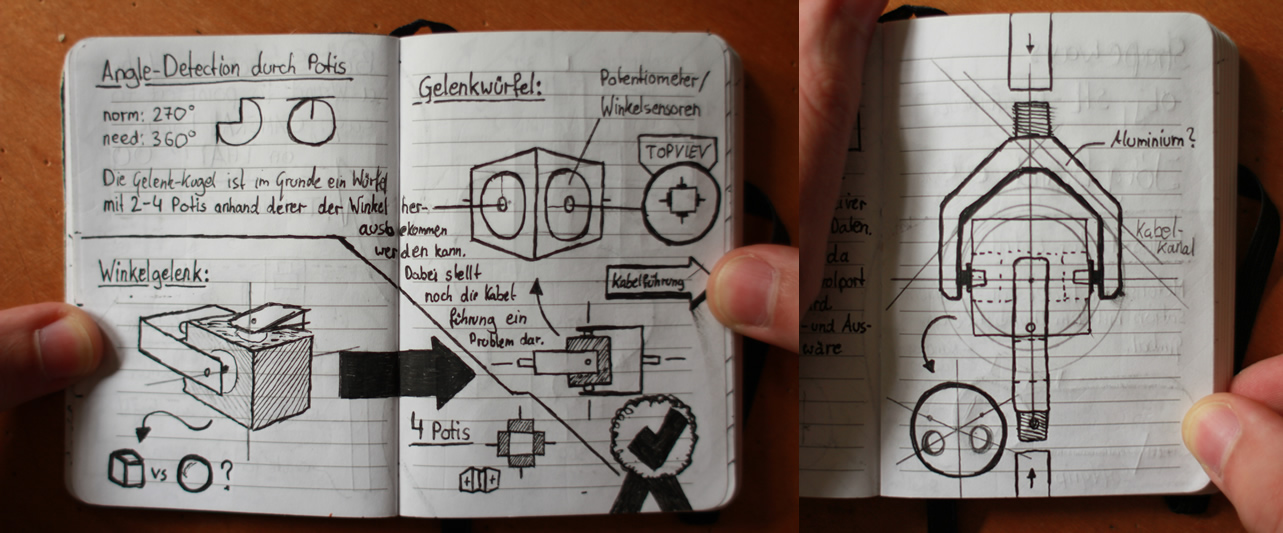 Angle-Detection durch Potis
norm: 270°
need: 360°
Die Gelenk-Kugel ist im Grunde ein Würfel
mit 2-4 Potis anhand derer der Winkel her-
ausbekommen
werden kann.
Dabei stellt
noch die Kabel
führung ein
Problem dar.
Winkelgelenk:
vs ?
Gelenkwürfel:
Potentiometer/
Winkelsensoren
TOPVIEV
Kabelführung
4 Potis
Aluminium?
Kabel-
kanal
Daten.
da
-und Aus-
wäre